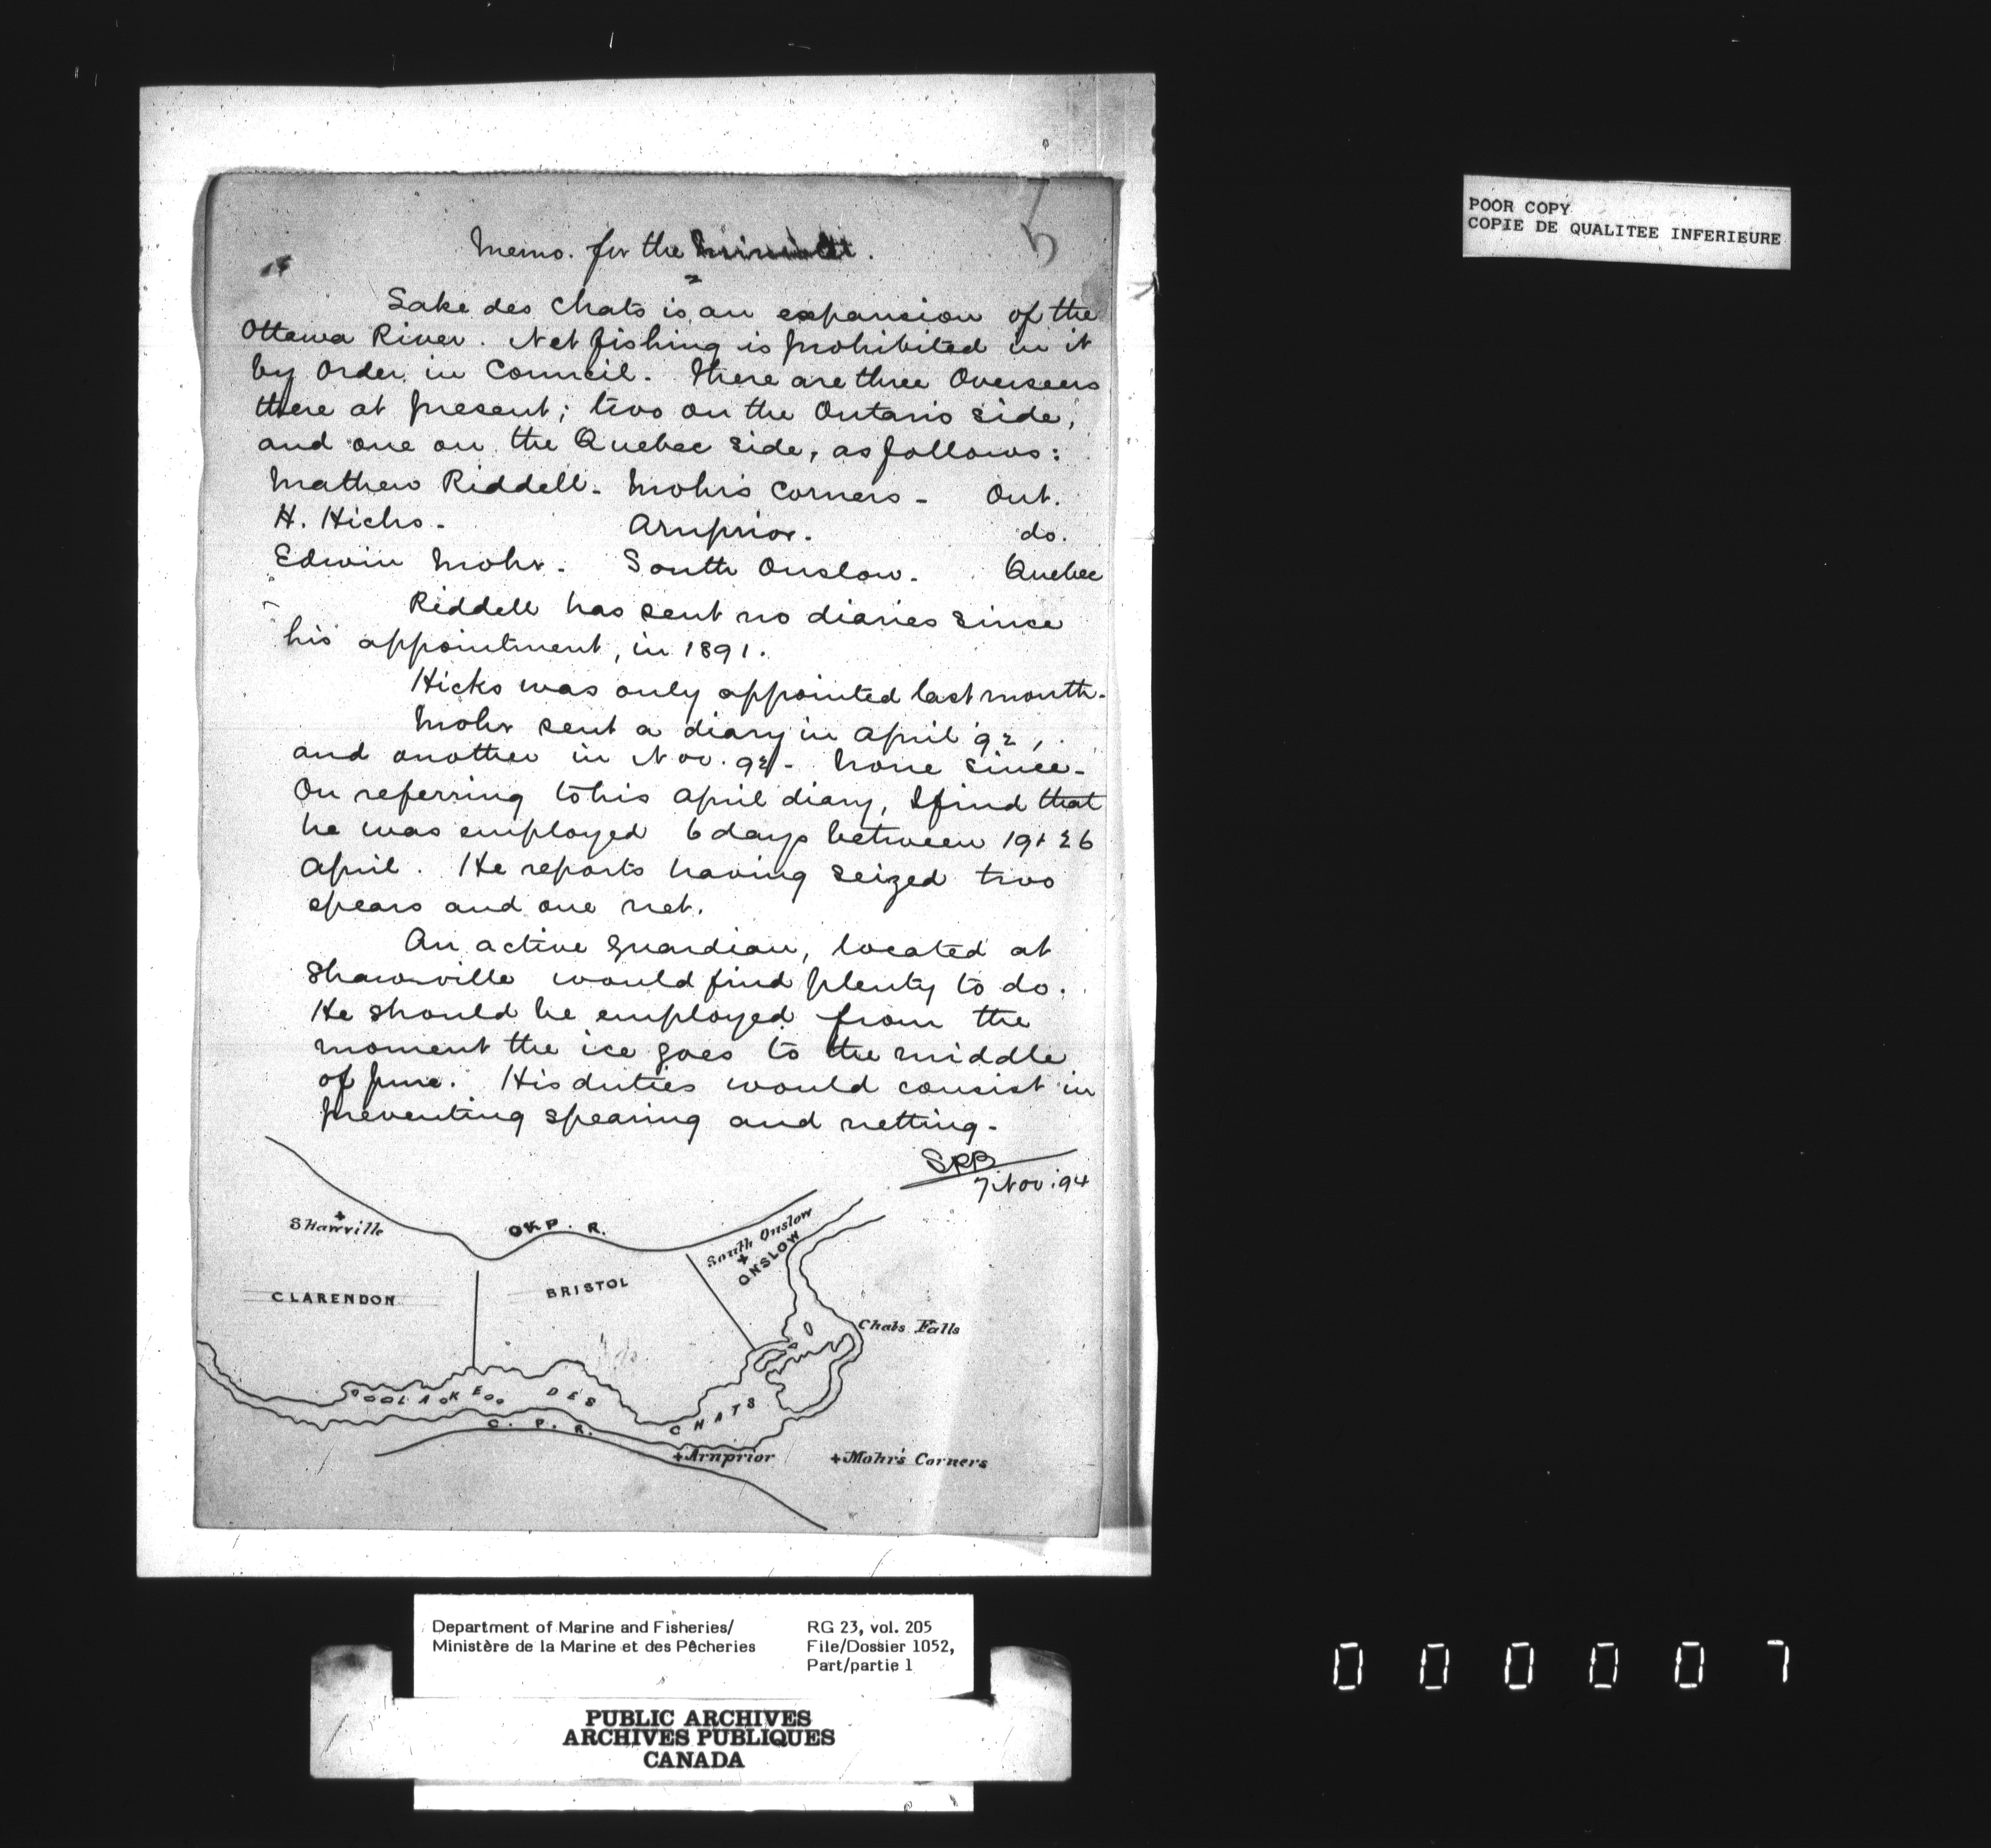 5
Memo. for the
Lake des Chats is an expansion of the
Ottawa River. Net fishing is prohibited in it
by Order in Council. There are three Overseers
there at present; two on the Ontario side,
and one on the Quebec side, as follows:
Mathew Riddell - Mohr's Corners - Ont.
H. Hicks - Arnprior. do.
Edwin Mohr - South Onslow. Quebec
Riddell has sent no diaries since
his appointment, in 1891.
Hicks was only appointed last month.
Mohr sent a diary in April 92,
and another in Nov. 92 - None since -
On referring to his April diary, I find that
he was employed 6 days between 19 & 26
April. He reports having seized two
spears and one net.
An active guardian, located at
Shawville would find plenty to do.
He should be employed from the
moment the ice goes to the middle
of June. His duties would consist in
preventing spearing and netting -
SPB
7 Nov. 94
Shawville
P. R.
South Onslow
ONSLOW
CLARENDON
BRISTOL
Chats Falls
LAKE DES CHATS
C. P. R.
Arnprior
Mohr's Corners
POOR COPY
COPIE DE QUALITEE INFERIEURE
Department of Marine and Fisheries/
Ministère de la Marine et des Pêcheries
RG 23, vol. 205
File/Dossier 1052,
Part/partie 1
PUBLIC ARCHIVES
ARCHIVES PUBLIQUES
CANADA
000007